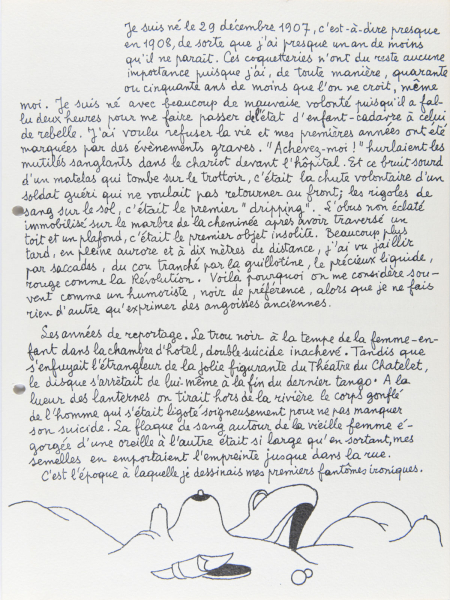 Je suis né le 29 décembre 1907, c'est-à-dire presque
en 1908, de sorte que j'ai presque un an de moins
qu'il ne parait. Ces coquetteries n'ont du reste aucune
importance puisque j'ai, de toute manière, quarante
ou cinquante ans de moins que l'on ne croit, même
moi. Je suis né avec beaucoup de mauvaise volonté puisqu'il a fal-
lu deux heures pour me faire passer de l'état d'enfant-cadavre à celui
de rebelle. J'ai voulu refuser la vie et mes premières années ont été
marquées par des évènements graves. "Achevez-moi!" hurlaient les
mutilés sanglants dans le chariot devant l'hôpital. Et ce bruit sourd
d'un matelas qui tombe sur le trottoir, c'était la chute volontaire d'un
soldat guéri qui ne voulait pas retourner au front; les rigoles de
sang sur le sol, c'était le premier "dripping". L'obus non éclaté
immobilisé sur le marbre de la cheminée après avoir traversé un
toit et un plafond, c'était le premier objet insolite. Beaucoup plus
tard, en pleine aurore et à dix mètres de distance, j'ai vu jaillir
par saccades, du cou tranché par la guillotine, le précieux liquide,
rouge comme la Révolution. Voilà pourquoi on me considère sou-
vent comme un humoriste, noir de préférence, alors que je ne fais
rien d'autre qu'exprimer des angoisses anciennes.
Les années de reportage. Le trou noir à la tempe de la femme-en-
fant dans la chambre d'hotel, double suicide inachevé. Tandis que
s'enfuyait l'étrangleur de la jolie figurante du Théatre du Chatelet,
le disque s'arrêtait de lui-même à la fin du dernier tango. A la
lueur des lanternes on tirait hors de la rivière le corps gonflé
de l'homme qui s'était ligoté soigneusement pour ne pas manquer
son suicide. La flaque de sang autour de la vieille femme é-
gorgée d'une oreille à l'autre était si large qu'en sortant, mes
semelles en emportaient l'empreinte jusque dans la rue.
C'est l'époque à laquelle je dessinais mes premiers fantômes ironiques.